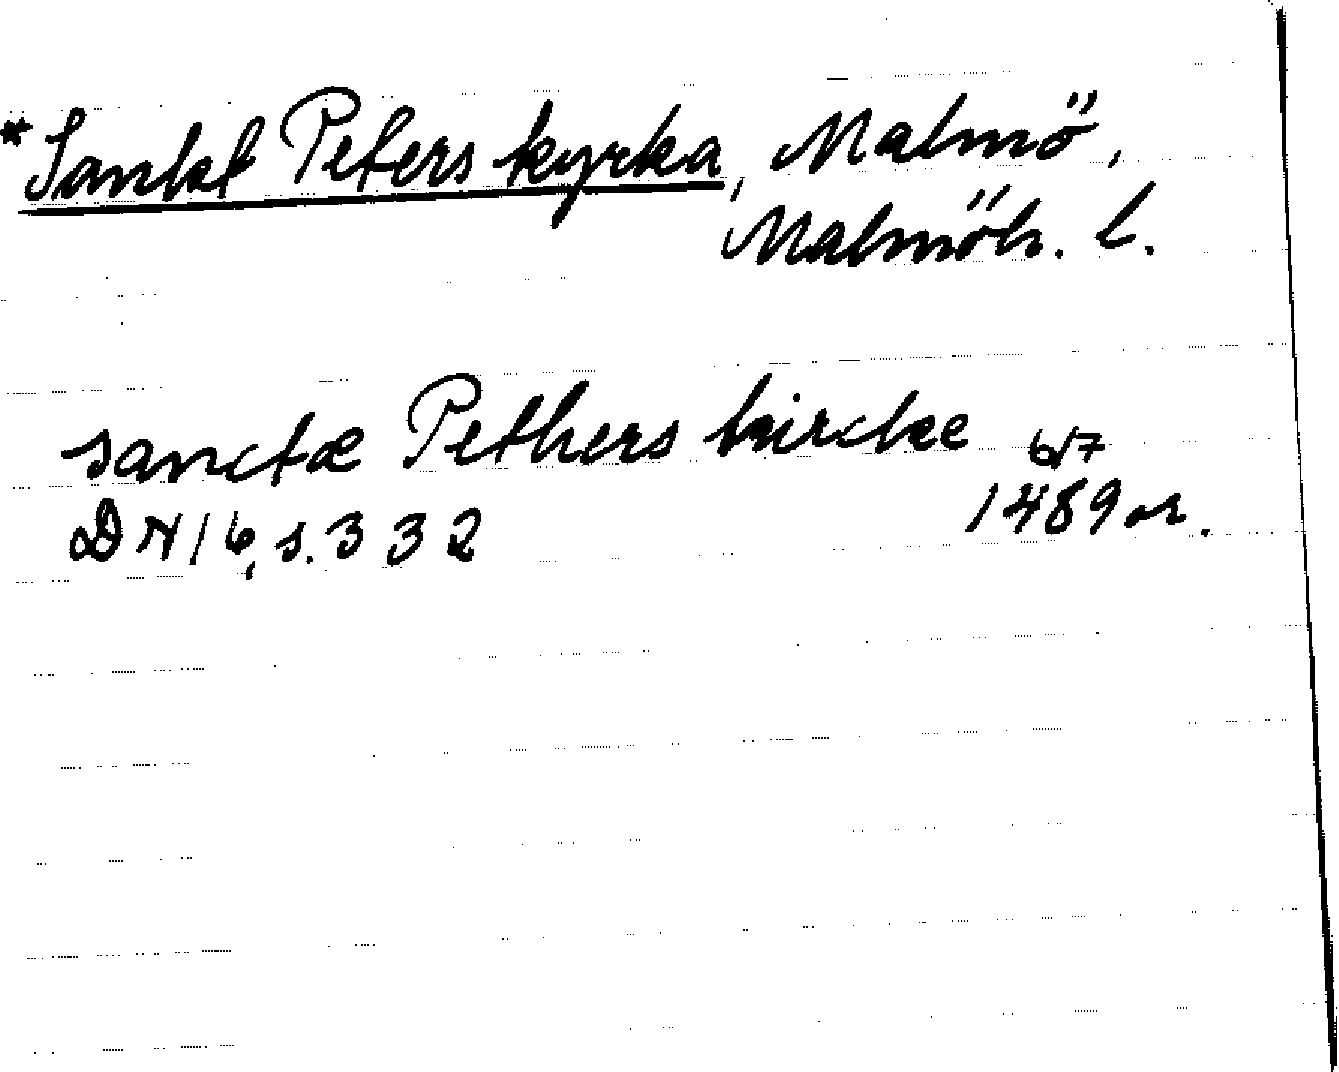 *Sankt Peters kyrka, Malmö,
Malmöh. l.
sanctæ Pethers kircke 6/7
DN 16, s. 332 1489 or.